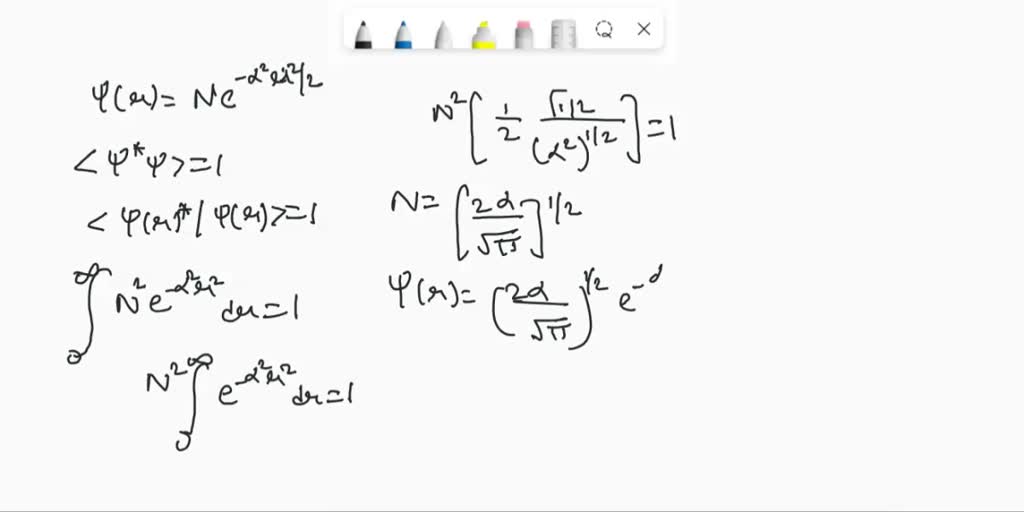 ψ(r) = N e^{-α²r²/2}
<ψ*ψ> = 1
<ψ(r)* | ψ(r)> = 1
∫₀^∞ N² e^{-α²r²} dr = 1
N² ∫₀^∞ e^{-α²r²} dr = 1
N² [ 1/2 √1/2 / (α²)^{1/2} ] = 1
N = [ 2α / √π ]^{1/2}
ψ(r) = ( 2α / √π )^{1/2} e^{-α